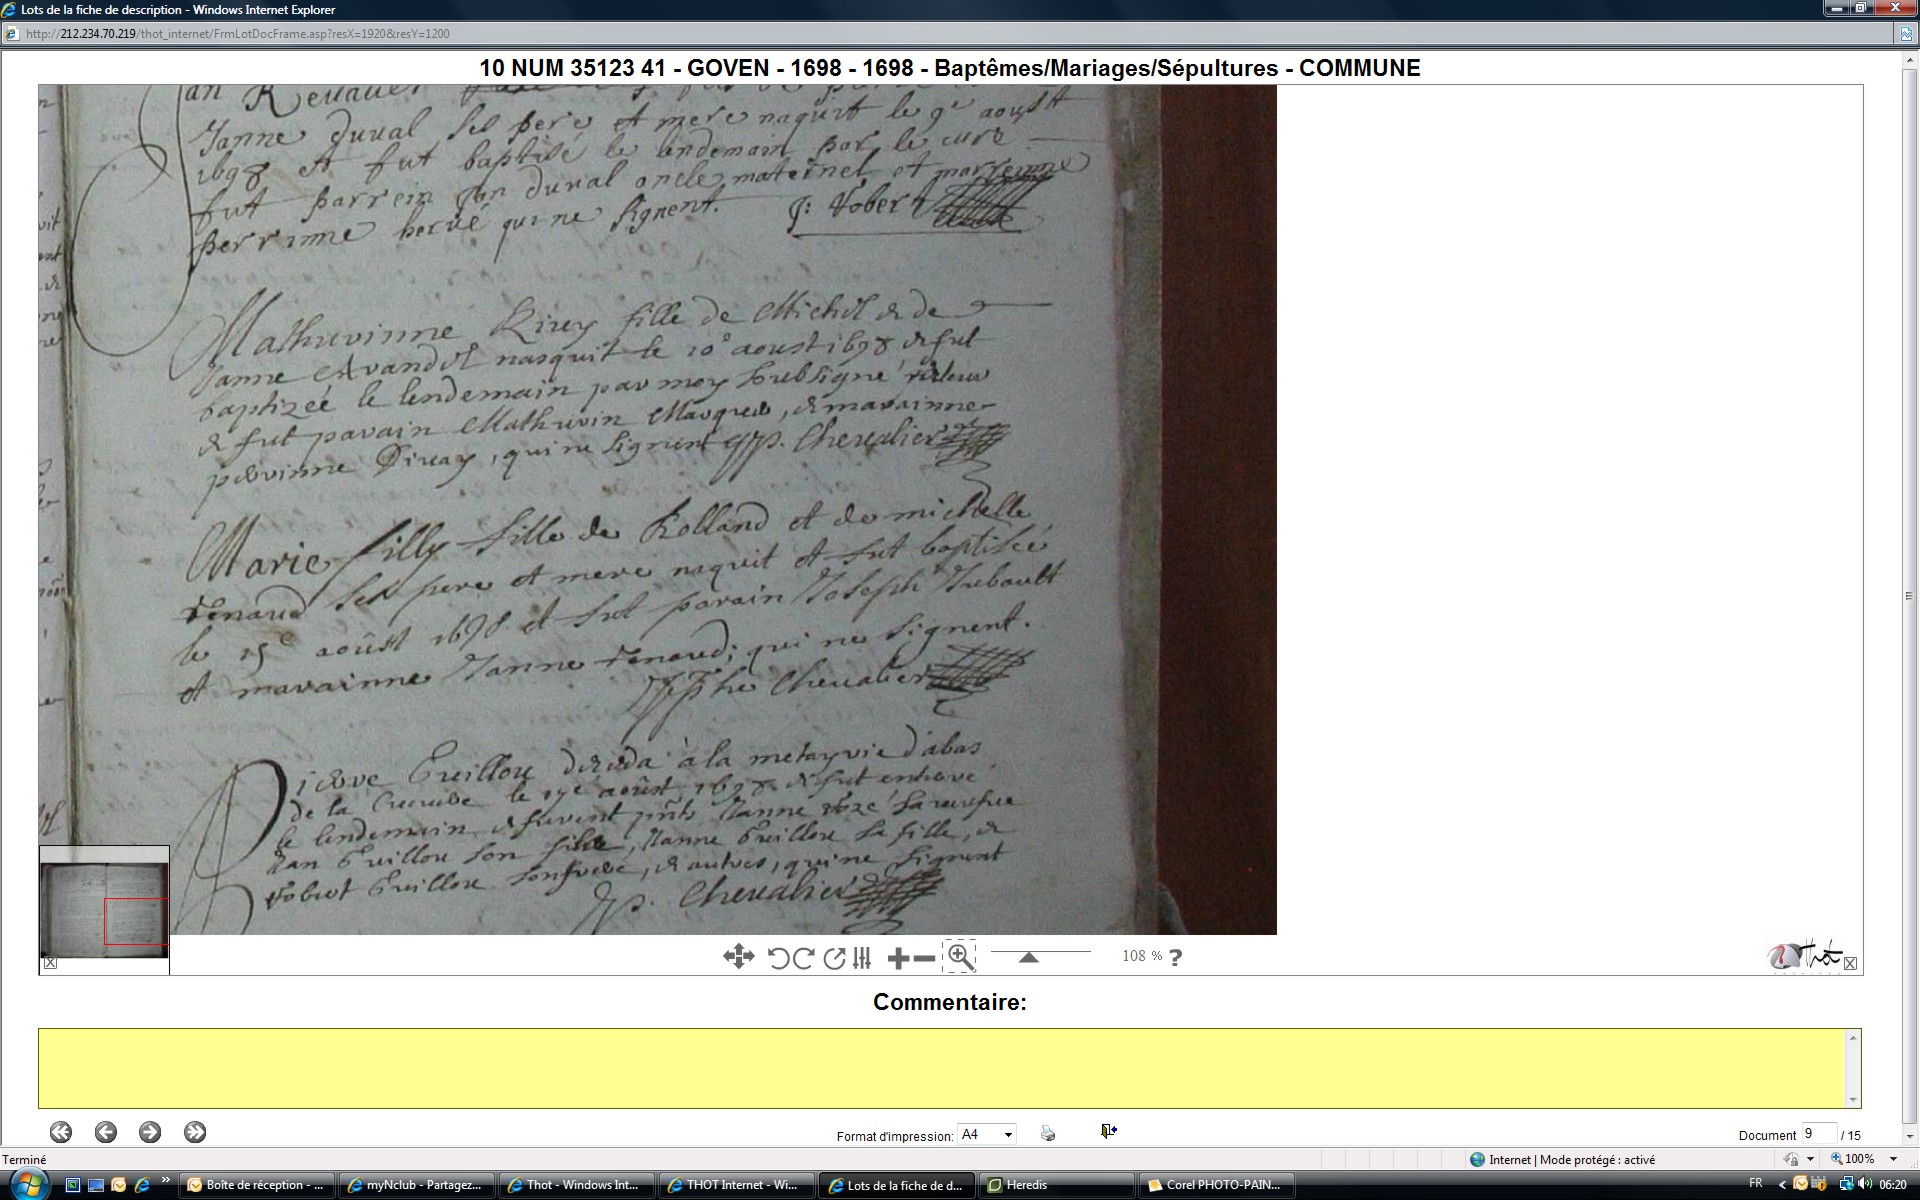 Lots de la fiche de description - Windows Internet Explorer
http://212.234.70.219/thot_internet/FrmLotDocFrame.asp?resX=1920&resY=1200
10 NUM 35123 41 - GOVEN - 1698 - 1698 - Baptêmes/Mariages/Sépultures - COMMUNE
Jan Revauer
Janne duval ses pere et mere naquit le 9e aoust
1698 et fut baptisé le lendemain par le curé
fut parrein Jan duval oncle maternel et marreinne
perrinne hervé qui ne signent. J: Robert
Mathurinne fille de Michel & de
Janne nasquit le 10e aoust 1698 & fut
baptizée le lendemain par moy soubsigné recteur
& fut parain Mathurin Marquer, & marainne
perrinne , qui ne signent Jp. Chevalier
Marie filly fille de Rolland et de michelle
renaud ses pere et mere naquit et fut baptisée
le 15e aoûst 1698 et fut parain Joseph Thebault
et marainne Janne renaud; qui ne signent.
Josephe Chevalier
Pierre Guillou deceda à la metayrie d'abas
de la le 17e aoûst 1698 & fut enterré
le lendemain & furent pnts Janne sa veufve
Jan Guillou son fils, Janne Guillou sa fille, &
robert Guillou son frere, & autres, qui ne signent
Jp. Chevalier
108 % ?
Thot
Commentaire:
Format d'impression: A4
Document 9 / 15
Terminé
Internet | Mode protégé : activé
100%
Boîte de réception - ...
myNclub - Partagez...
Thot - Windows Int...
THOT Internet - Wi...
Lots de la fiche de d...
Heredis
Corel PHOTO-PAIN...
FR
06:20